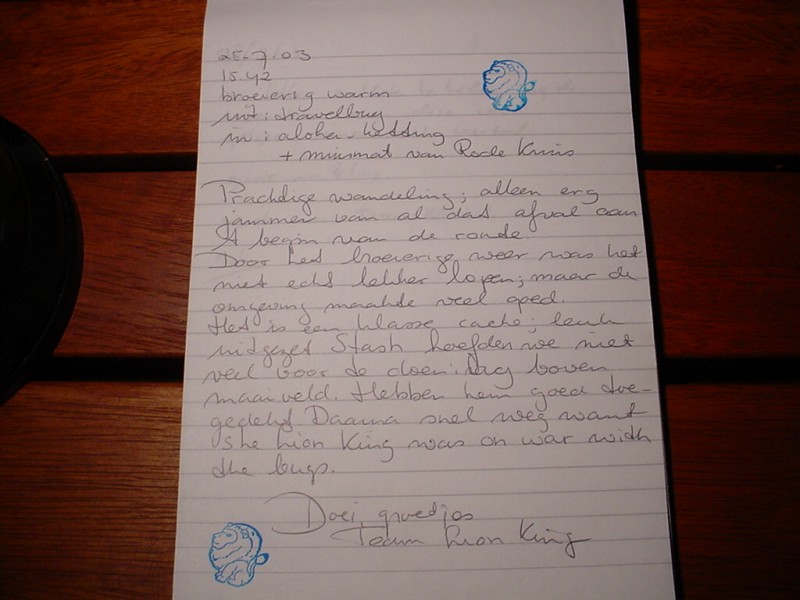 25-7-03
15.42
broeierig warm
uit: travelbug
in: aloha-ketting
+ muismat van Rode Kruis
Prachtige wandeling; alleen erg
jammer van al dat afval aan
't begin van de ronde.
Door het broeierige weer was het
niet echt lekker lopen; maar de
omgeving maakte veel goed.
Het is een klasse cache; leuk
uitgezet Stash hoefden we niet
veel voor te doen: lag boven
maaiveld. Hebben hem goed toe-
gedekt Daarna snel weg want
she Lion King was on war with
the bugs.
Doei, groetjes
Team Lion King